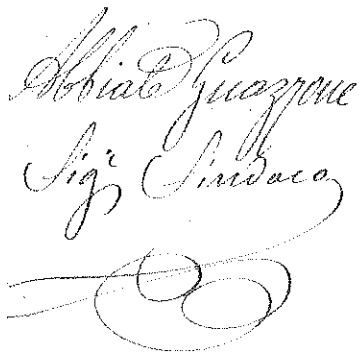 Abbiate Guazzone
Sigr Sindaco